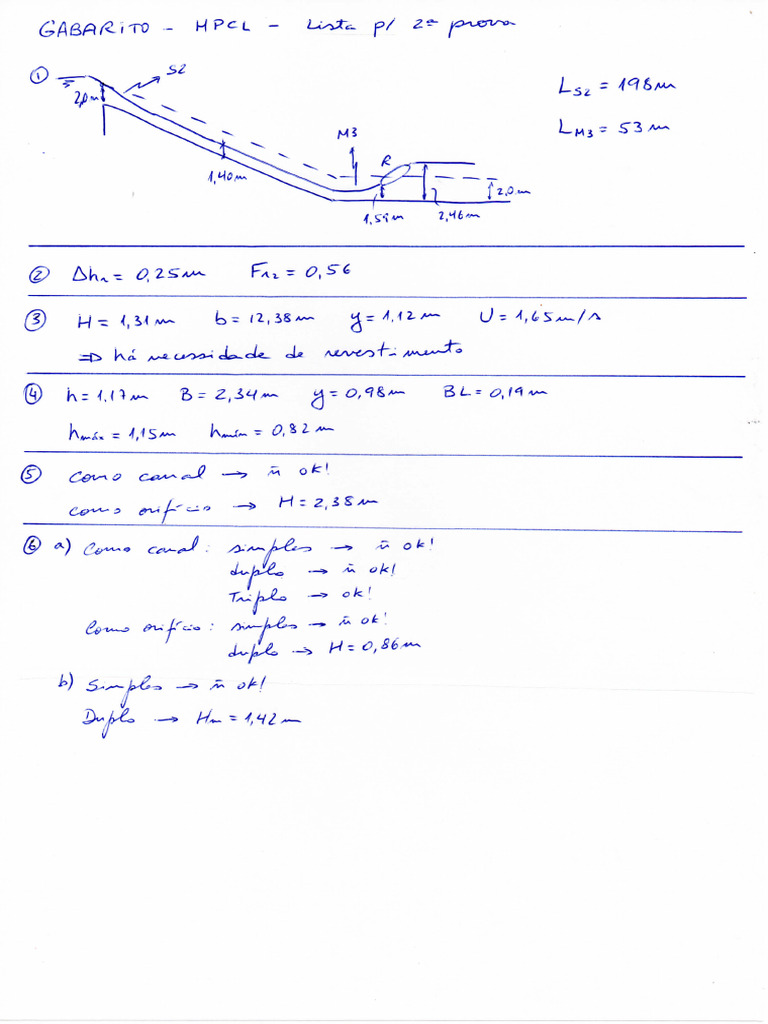 GABARITO - HPCL - Lista p/ 2ª prova
①
S2
2,0m
1,40m
M3
R
1,59m
2,46m
2,0m
L S2 = 198m
L M3 = 53m
② Δhr = 0,25m Fr2 = 0,56
③ H = 1,31m b = 12,38m y = 1,12m U = 1,65m/s
⇒ há necessidade de revestimento
④ h = 1,17m B = 2,34m y = 0,98m BL = 0,19m
hmáx = 1,15m hmín = 0,82m
⑤ como canal → ñ ok!
como orifício → H = 2,38m
⑥ a) Como canal: simples → ñ ok!
duplo → ñ ok!
Triplo → ok!
Como orifício: simples → ñ ok!
duplo → H = 0,86m
b) Simples → ñ ok!
Duplo → Hm = 1,42m